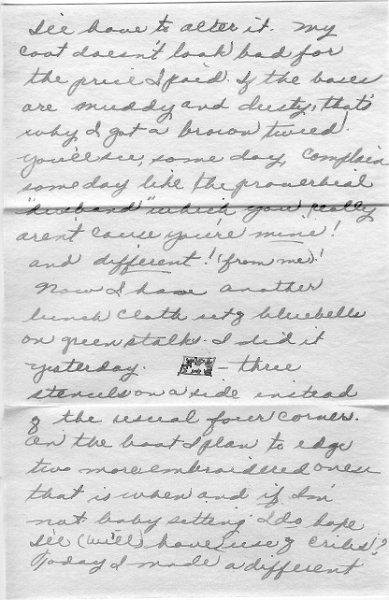 I'll have to alter it. My
coat doesn't look bad for
the price I paid. If the bases
are muddy and dusty, that's
why I got a brown tweed.
You'll see, some day, complain
some day like the proverbial
"husband" which you really
aren't 'cause you're mine!
and different! (from me)!
Now I have another
lunch cloth set of bluebells
on green stalks. I did it
yesterday. - three
stencils on a side instead
of the usual four corners.
On the boat I plan to edge
two more embroidered ones
that is when and if I'm
not baby sitting. I do hope
I'll (we'll) have use of cribs!?
Today I made a different